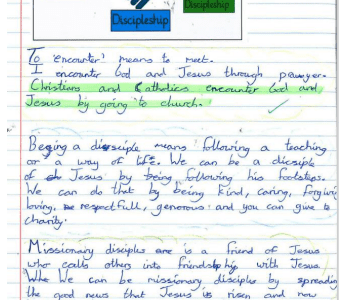 Discipleship
Discipleship
To 'encounter' means to meet.
I encounter God and Jesus through
Christians and Catholics encounter God and
Jesus by going to church.
means following a teaching
or a way of life. We can be a
of Jesus by being following his footsteps.
We can do that by being kind, caring,
loving, respectfull, generous and you can give to
charity.
Missionary disciples is a friend of Jesus
who calls others into friendship with Jesus.
We can be missionary disciples by spreading
the good news that Jesus is risen and now